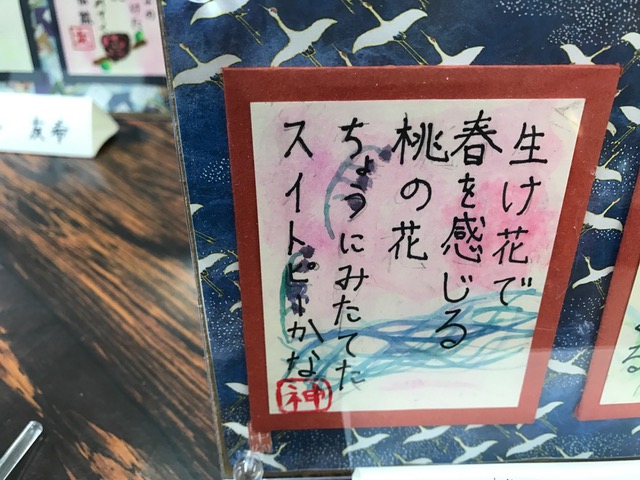 生け花で
春を感じる
桃の花
ちょうにみたてた
スイトピーかな
神